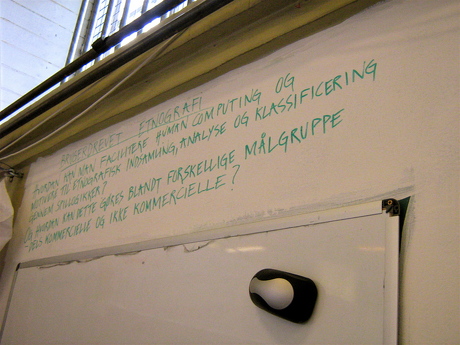 BRUGERDREVET ETNOGRAFI
HVORDAN KAN MAN FACILITERE HUMAN COMPUTING OG
MOTIVERE TIL ETNOGRAFISK INDSAMLING, ANALYSE OG KLASSIFICERING
GENNEM SPILLOGIKKER?
OG HVORDAN KAN DETTE GØRES BLANDT FORSKELLIGE MÅLGRUPPE
DELS KOMMERCIELLE OG IKKE KOMMERCIELLE?